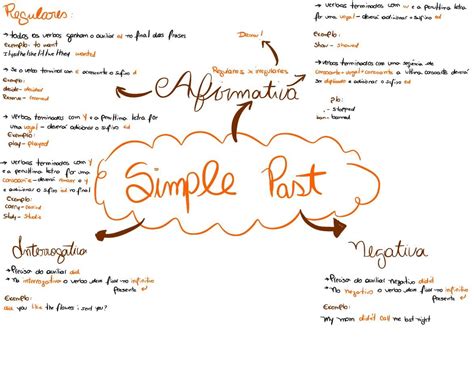 Regulares:
→ todos os verbos ganham o auxiliar ed no final das frases
Exemplo: to want
I/you/he/she/it/we/they wanted
→ Se o verbo terminar com e acrescenta o sufixo d
Exemplo:
decide - decided
→ Verbos terminados com y e a penúltima letra
for uma vogal - deverá adicionar o sufixo ed
Exemplo:
play - played
→ Verbos terminados com y
e a penúltima letra for uma
consoante - deverá remover o y
e adicionar o sufixo ied no final
Exemplo:
carry - carried
Study - Studied
Decorar!
Regulares x irregulares
Afirmativa
→ verbos terminados com w e a penúltima letra
for uma vogal - deverá adicionar o sufixo ed
Exemplo:
Show - showed
→ Verbos terminados com uma sequência de
consoante - vogal - consoante a última consoante deverá
ser duplicada e adicionar o sufixo ed
stop - stopped
Simple Past
Interrogativa
→ Preciso do auxiliar did
→ Na interrogativa o verbo deve ficar no infinitivo
presente
Exemplo:
did you like the flowers i sent you?
Negativa
→ Preciso do auxiliar negativo didn't
→ No negativo o verbo deve ficar no infinitivo
presente
Exemplo:
My mom didn't call me last night